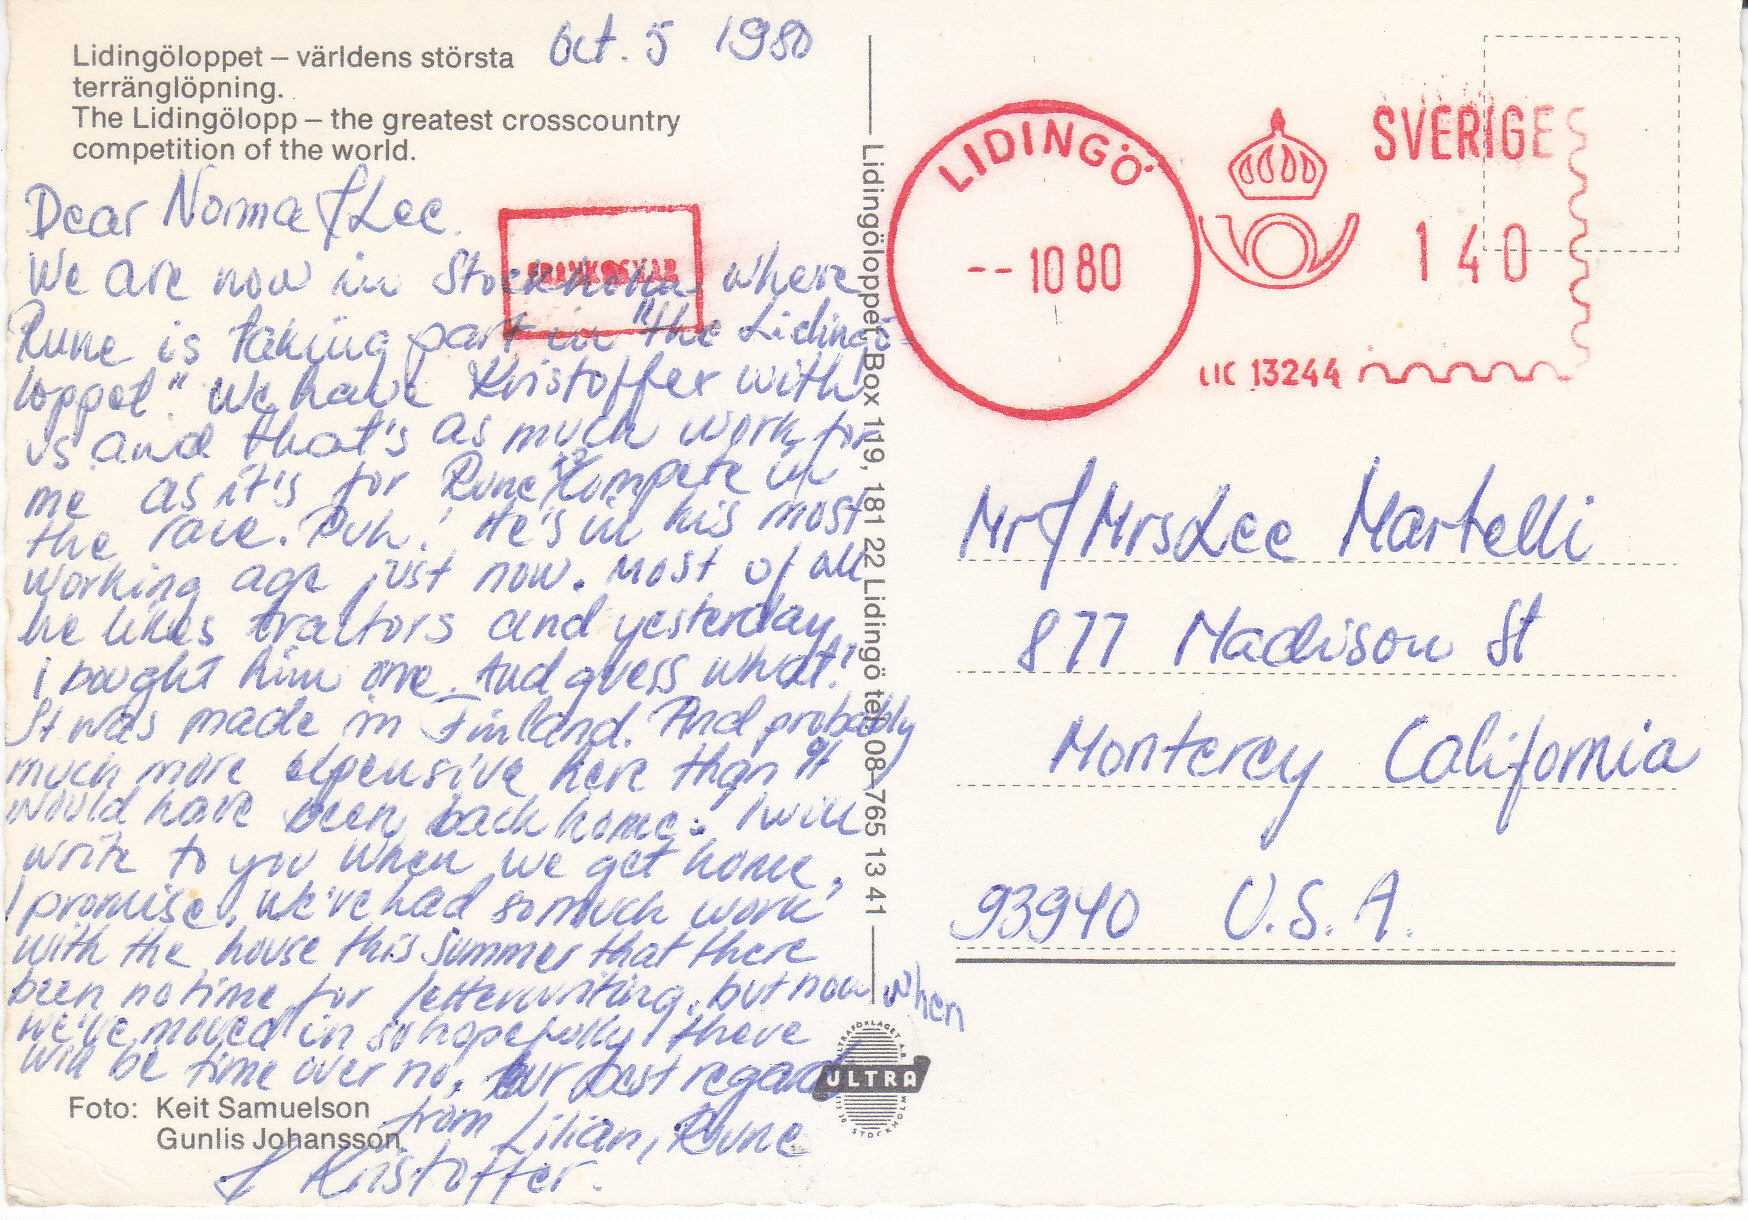 Lidingöloppet – världens största
terränglöpning.
The Lidingölopp – the greatest crosscountry
competition of the world.
Oct. 5 1980
Dear Norma & Lee.
We are now in Stockholm where
Rune is taking part in "the Lidingö=
loppet". We have Kristoffer with
us and that's as much work for
me as it's for Rune to compete in
the race. Puh! He's in his most
working age just now. Most of all
he likes tractors and yesterday
i bought him one. And guess what!
It was made in Finland. And probably
much more expensive here than it
would have been back home. I will
write to you when we get home,
I promise. We've had so much work
with the house this summer that there
been no time for letterwriting, but now when
we've moved in so hopefully there
will be time over no. Our best regard
from Lilian, Rune
& Kristoffer.
Foto: Keit Samuelson
Gunlis Johansson
Lidingöloppet, Box 119, 181 22 Lidingö tel 08-765 13 41
ULTRA
LIDINGÖ
-- 10 80
SVERIGE
140
13244
Mr & Mrs Lee Martelli
877 Madison St
Monterey California
93940 U.S.A.